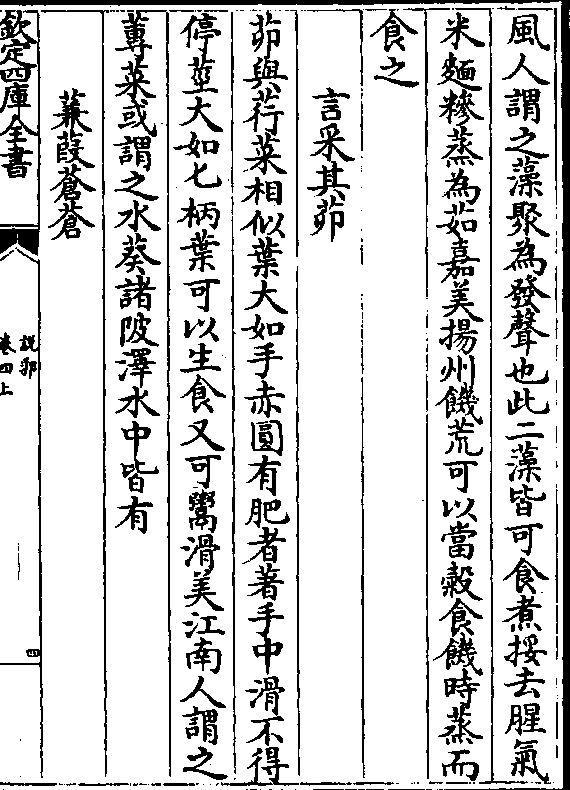 風人謂之藻聚為發聲也此二藻皆可食煮挼去腥氣
米麵糝蒸為茹嘉美揚州饑荒可以當榖食饑時蒸而
食之
言采其茆
茆與荇菜相似葉大如手赤圓有肥者著手中滑不得
停莖大如匕柄葉可以生食又可鬻滑美江南人謂之
蓴菜或謂之水葵諸陂澤水中皆有
蒹葭蒼蒼
欽定四庫全書
說郛
卷四上
四